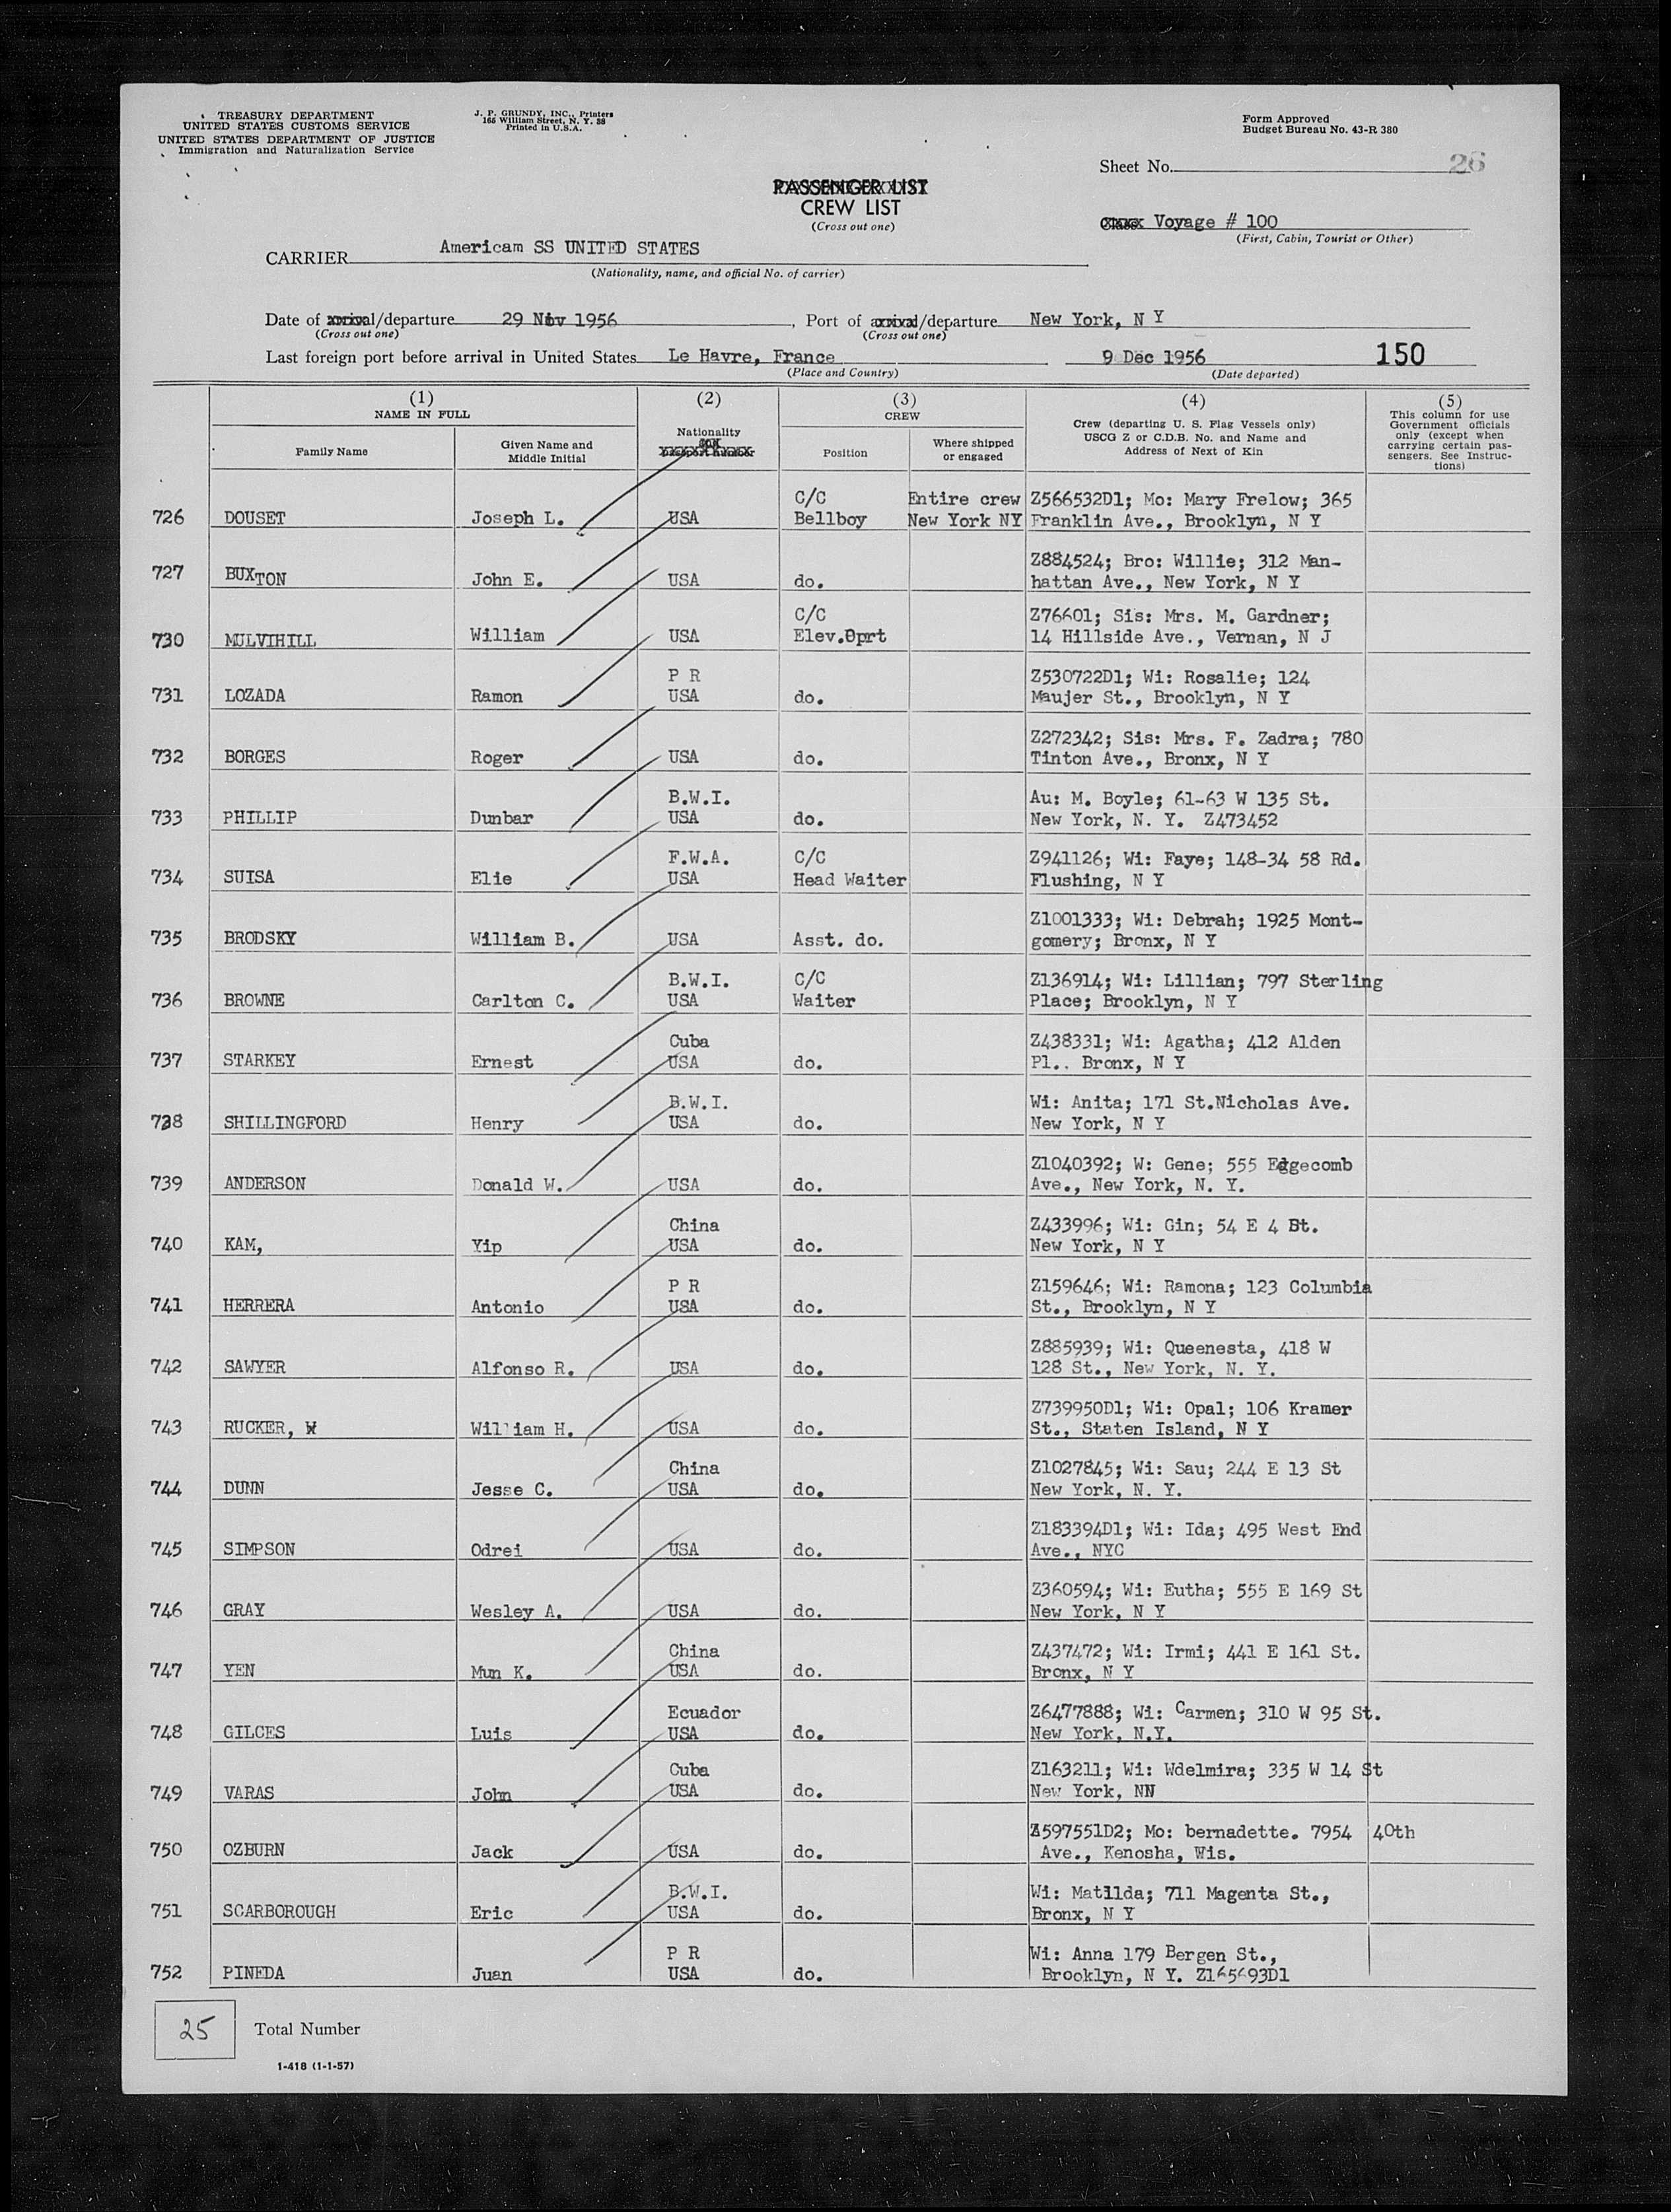 TREASURY DEPARTMENT
UNITED STATES CUSTOMS SERVICE
UNITED STATES DEPARTMENT OF JUSTICE
Immigration and Naturalization Service
J. P. GRUNDY, INC., Printers
166 William Street, N. Y. 38
Printed in U.S.A.
Form Approved
Budget Bureau No. 43-R 380
Sheet No. 26
PASSENGER LIST
CREW LIST
(Cross out one)
Class Voyage # 100
(First, Cabin, Tourist or Other)
CARRIER Americam SS UNITED STATES
(Nationality, name, and official No. of carrier)
Date of arrival/departure 29 Nov 1956, Port of arrival/departure New York, N Y
(Cross out one) (Cross out one)
Last foreign port before arrival in United States Le Havre, France 9 Dec 1956 150
(Place and Country) (Date departed)
(1) (2) (3) (4) (5)
NAME IN FULL
Family Name
Given Name and
Middle Initial
Nationality
and
passport number
CREW
Position
Where shipped
or engaged
Crew (departing U. S. Flag Vessels only)
USCG Z or C.D.B. No. and Name and
Address of Next of Kin
This column for use
Government officials
only (except when
carrying certain pas-
sengers. See Instruc-
tions)
C/C Entire crew Z566532D1; Mo: Mary Frelow; 365
726 DOUSET Joseph L. USA Bellboy New York NY Franklin Ave., Brooklyn, N Y
Z884524; Bro: Willie; 312 Man-
727 BUXTON John E. USA do. hattan Ave., New York, N Y
C/C Z76601; Sis: Mrs. M. Gardner;
730 MULVIHILL William USA Elev.Oprt 14 Hillside Ave., Vernan, N J
P R Z530722D1; Wi: Rosalie; 124
731 LOZADA Ramon USA do. Maujer St., Brooklyn, N Y
Z272342; Sis: Mrs. F. Zadra; 780
732 BORGES Roger USA do. Tinton Ave., Bronx, N Y
B.W.I. Au: M. Boyle; 61-63 W 135 St.
733 PHILLIP Dunbar USA do. New York, N. Y. Z473452
F.W.A. C/C Z941126; Wi: Faye; 148-34 58 Rd.
734 SUISA Elie USA Head Waiter Flushing, N Y
Z1001333; Wi: Debrah; 1925 Mont-
735 BRODSKY William B. USA Asst. do. gomery; Bronx, N Y
B.W.I. C/C Z136914; Wi: Lillian; 797 Sterling
736 BROWNE Carlton C. USA Waiter Place; Brooklyn, N Y
Cuba Z438331; Wi: Agatha; 412 Alden
737 STARKEY Ernest USA do. Pl., Bronx, N Y
B.W.I. Wi: Anita; 171 St.Nicholas Ave.
738 SHILLINGFORD Henry USA do. New York, N Y
Z1040392; W: Gene; 555 Edgecomb
739 ANDERSON Donald W. USA do. Ave., New York, N. Y.
China Z433996; Wi: Gin; 54 E 4 St.
740 KAM, Yip USA do. New York, N Y
P R Z159646; Wi: Ramona; 123 Columbia
741 HERRERA Antonio USA do. St., Brooklyn, N Y
Z885939; Wi: Queenesta, 418 W
742 SAWYER Alfonso R. USA do. 128 St., New York, N. Y.
Z739950D1; Wi: Opal; 106 Kramer
743 RUCKER, W William H. USA do. St., Staten Island, N Y
China Z1027845; Wi: Sau; 244 E 13 St
744 DUNN Jesse C. USA do. New York, N. Y.
Z183394D1; Wi: Ida; 495 West End
745 SIMPSON Odrei USA do. Ave., NYC
Z360594; Wi: Eutha; 555 E 169 St
746 GRAY Wesley A. USA do. New York, N Y
China Z437472; Wi: Irmi; 441 E 161 St.
747 YEN Mun K. USA do. Bronx, N Y
Ecuador Z6477888; Wi: Carmen; 310 W 95 St.
748 GILCES Luis USA do. New York, N.Y.
Cuba Z163211; Wi: Wdelmira; 335 W 14 St
749 VARAS John USA do. New York, NN
Z597551D2; Mo: bernadette. 7954 40th
750 OZBURN Jack USA do. Ave., Kenosha, Wis.
B.W.I. Wi: Matilda; 711 Magenta St.,
751 SCARBOROUGH Eric USA do. Bronx, N Y
P R Wi: Anna 179 Bergen St.,
752 PINEDA Juan USA do. Brooklyn, N Y. Z165693D1
25 Total Number
1-418 (1-1-57)